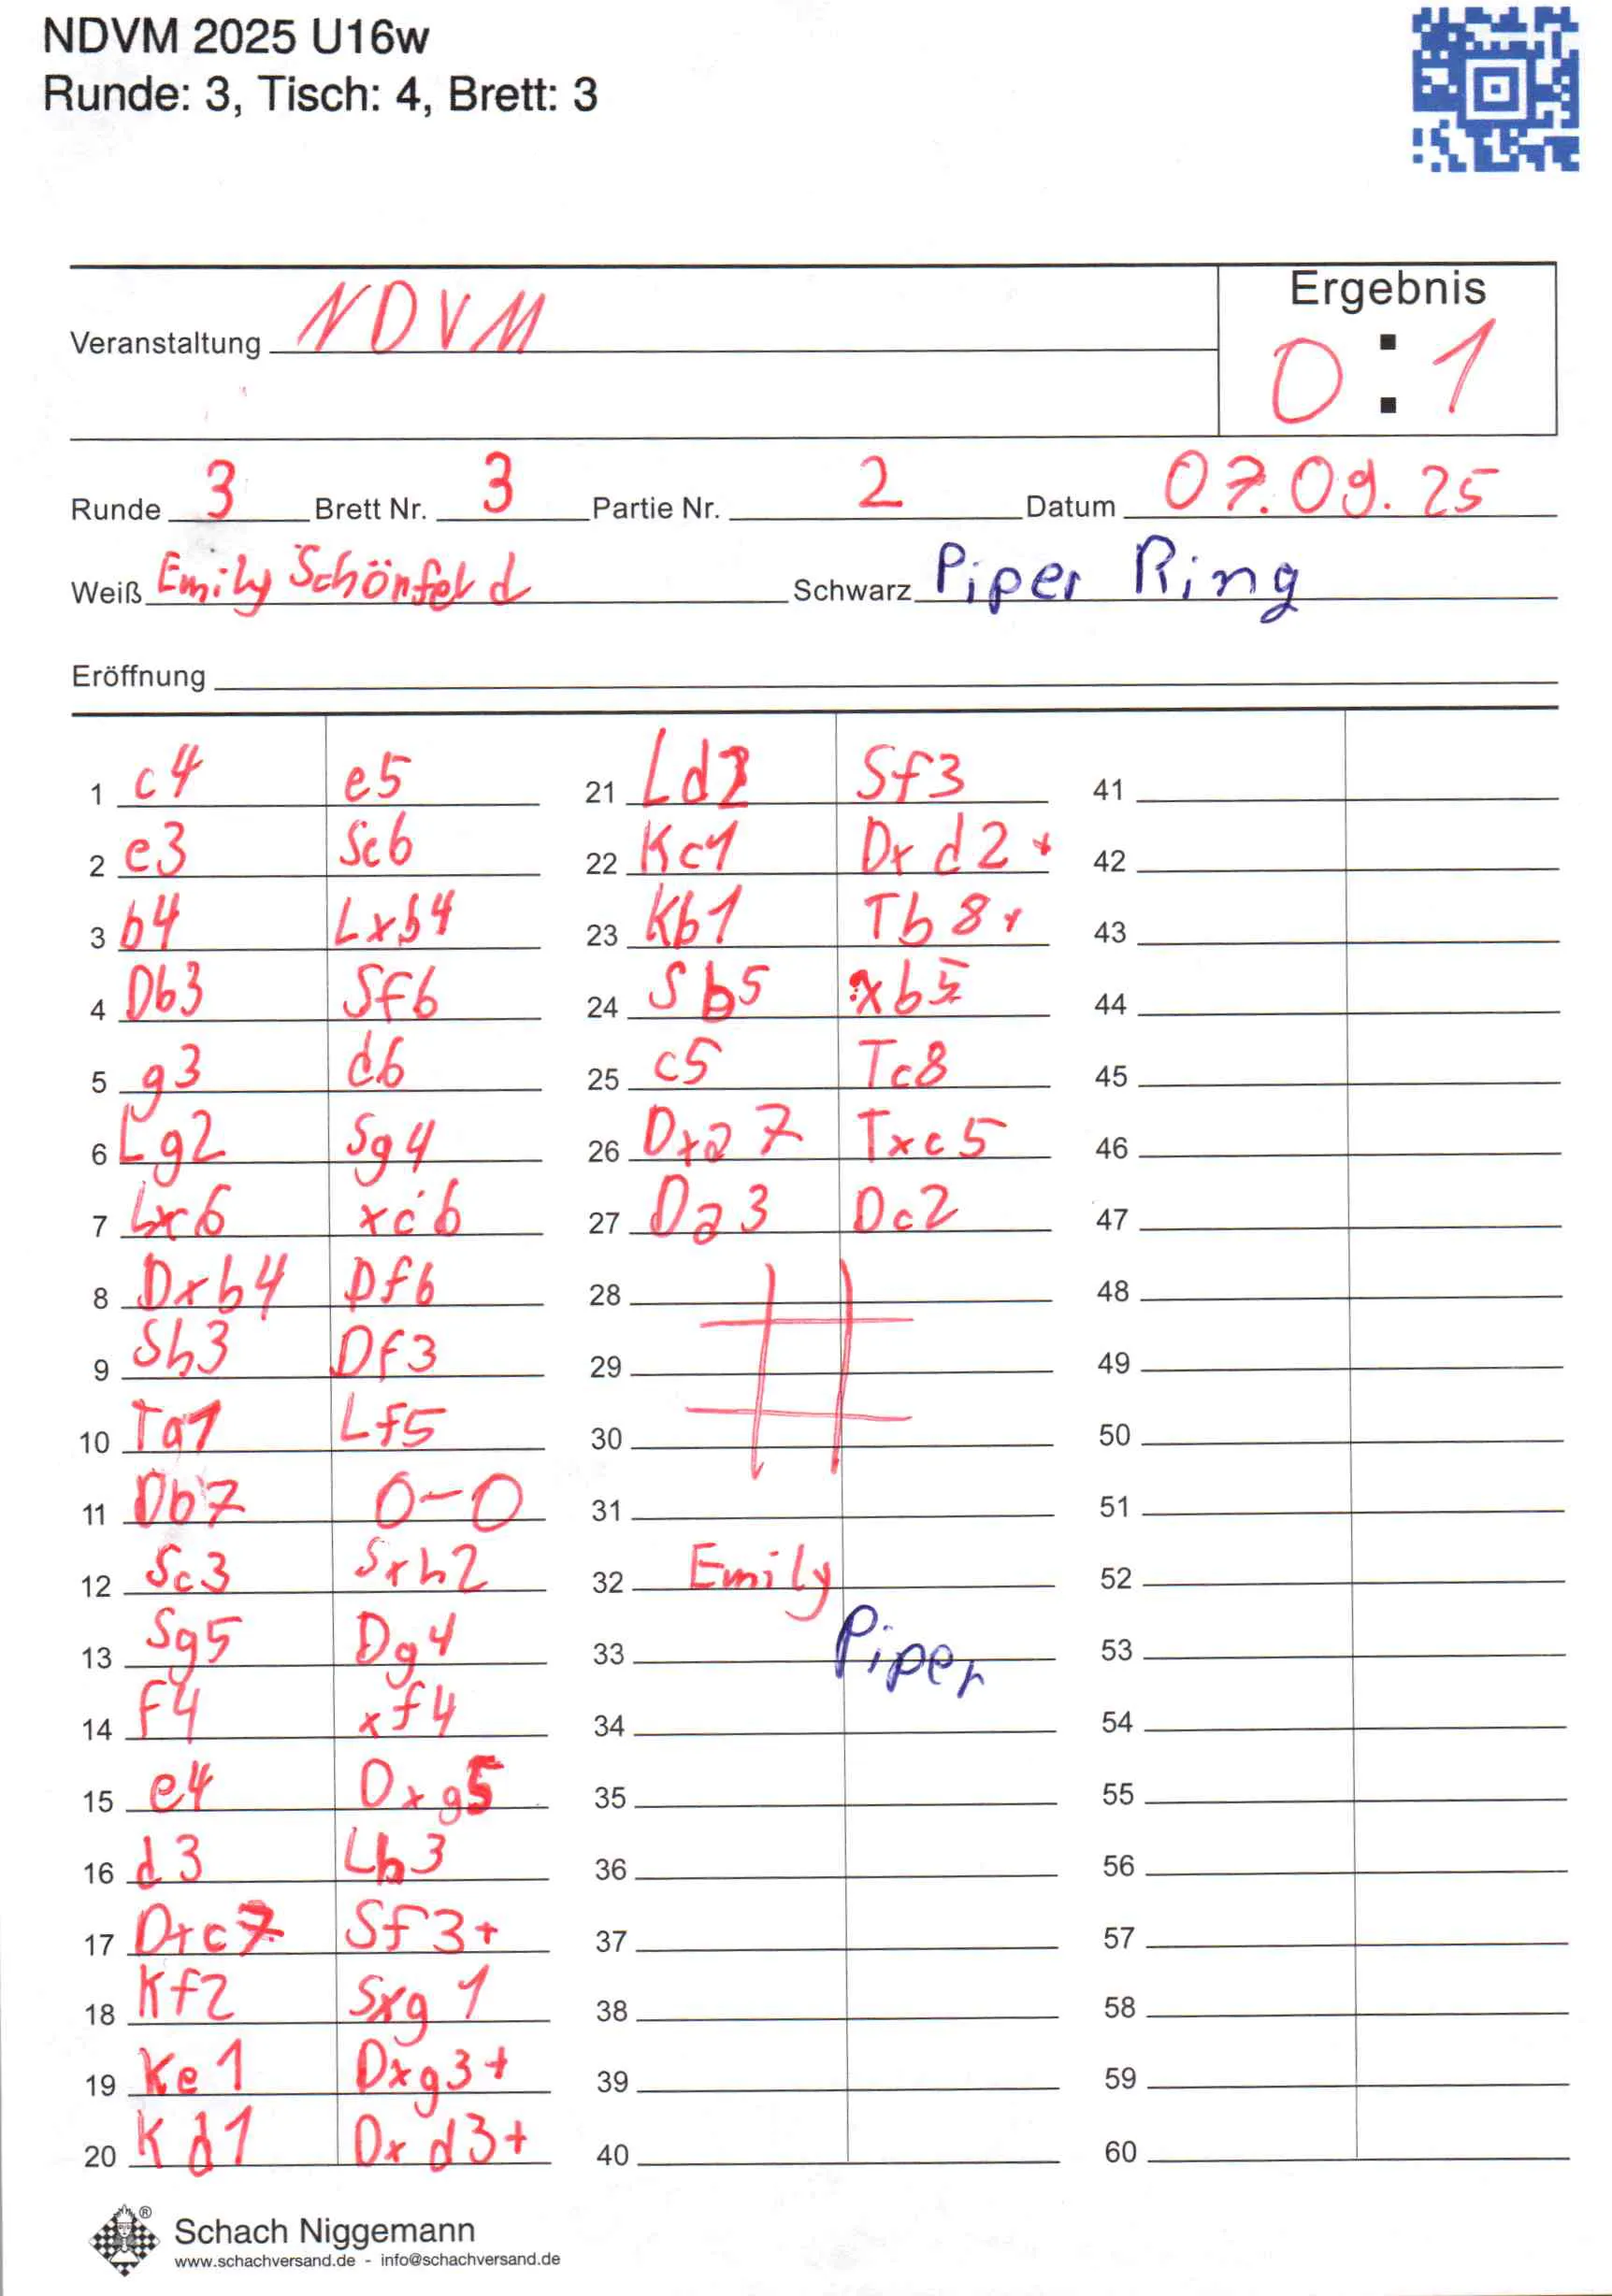 NDVM 2025 U16w
Runde: 3, Tisch: 4, Brett: 3
Ergebnis
Veranstaltung NDVM
0 : 1
Runde 3 Brett Nr. 3 Partie Nr. 2 Datum 07.09.25
Weiß Emily Schönfeld Schwarz Piper Ring
Eröffnung
1 c4 e5
2 e3 Sc6
3 b4 Lxb4
4 Db3 Sf6
5 g3 d6
6 Lg2 Sg4
7 Lxc6 xc6
8 Dxb4 Df6
9 Sh3 Df3
10 Tg1 Lf5
11 Db7 0-0
12 Sc3 Sxh2
13 Sg5 Dg4
14 f4 xf4
15 e4 Dxg5
16 d3 Lh3
17 Dxc7 Sf3+
18 Kf2 Sxg1
19 Ke1 Dxg3+
20 Kd1 Dxd3+
21 Ld2 Sf3
22 Kc1 Dxd2+
23 Kb1 Tb8+
24 Sb5 xb5
25 c5 Tc8
26 Dxa7 Txc5
27 Da3 Dc2
#
28
29
30
31
32 Emily
33 Piper
34
35
36
37
38
39
40
41
42
43
44
45
46
47
48
49
50
51
52
53
54
55
56
57
58
59
60
Schach Niggemann
www.schachversand.de - info@schachversand.de